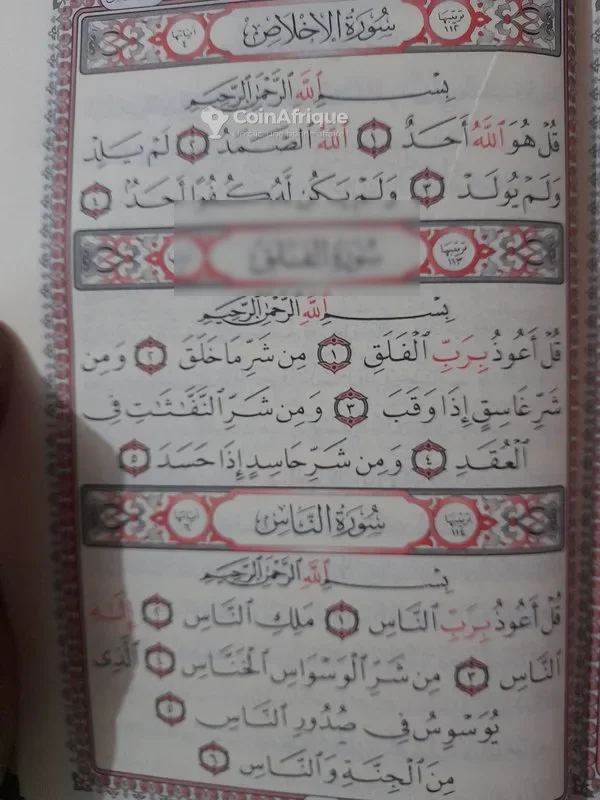 ترتيبها ١١٢ سُورَةُ الإِخْلَاصِ آياتها ٤
بِسْمِ ٱللَّهِ ٱلرَّحْمَٰنِ ٱلرَّحِيمِ
CoinAfrique
قُلْ هُوَ ٱللَّهُ أَحَدٌ ١ ٱللَّهُ ٱلصَّمَدُ ٢ لَمْ يَلِدْ
وَلَمْ يُولَدْ ٣ وَلَمْ يَكُن لَّهُۥ كُفُوًا أَحَدٌۢ ٤
ترتيبها ١١٣
بِسْمِ ٱللَّهِ ٱلرَّحْمَٰنِ ٱلرَّحِيمِ
قُلْ أَعُوذُ بِرَبِّ ٱلْفَلَقِ ١ مِن شَرِّ مَا خَلَقَ ٢ وَمِن
شَرِّ غَاسِقٍ إِذَا وَقَبَ ٣ وَمِن شَرِّ ٱلنَّفَّٰثَٰتِ فِى
ٱلْعُقَدِ ٤ وَمِن شَرِّ حَاسِدٍ إِذَا حَسَدَ ٥
ترتيبها ١١٤ سُورَةُ النَّاسِ آياتها ٦
بِسْمِ ٱللَّهِ ٱلرَّحْمَٰنِ ٱلرَّحِيمِ
قُلْ أَعُوذُ بِرَبِّ ٱلنَّاسِ ١ مَلِكِ ٱلنَّاسِ ٢ إِلَٰهِ
ٱلنَّاسِ ٣ مِن شَرِّ ٱلْوَسْوَاسِ ٱلْخَنَّاسِ ٤ ٱلَّذِى
يُوَسْوِسُ فِى صُدُورِ ٱلنَّاسِ ٥
مِنَ ٱلْجِنَّةِ وَٱلنَّاسِ ٦